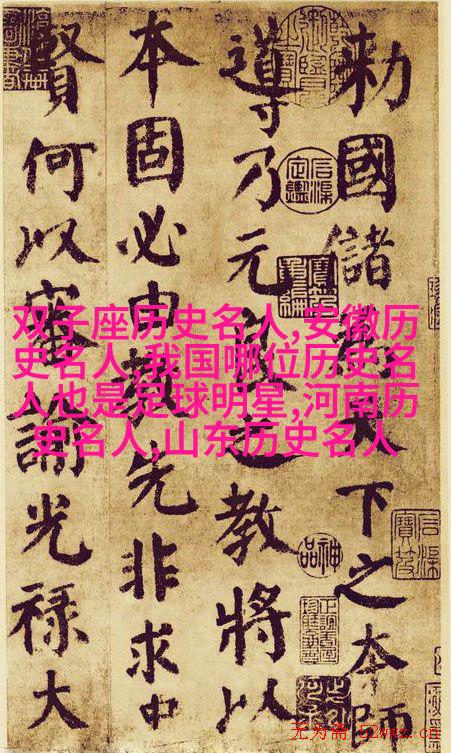 勅國儲為天下之本師
導乃元良之教將以
本固必由教先非求中
賢何以審諭光祿大
双子座历史名人,安徽历
史名人,我国哪位历史名
人也是足球明星,河南历
史名人,山东历史名人
神品
无为斋